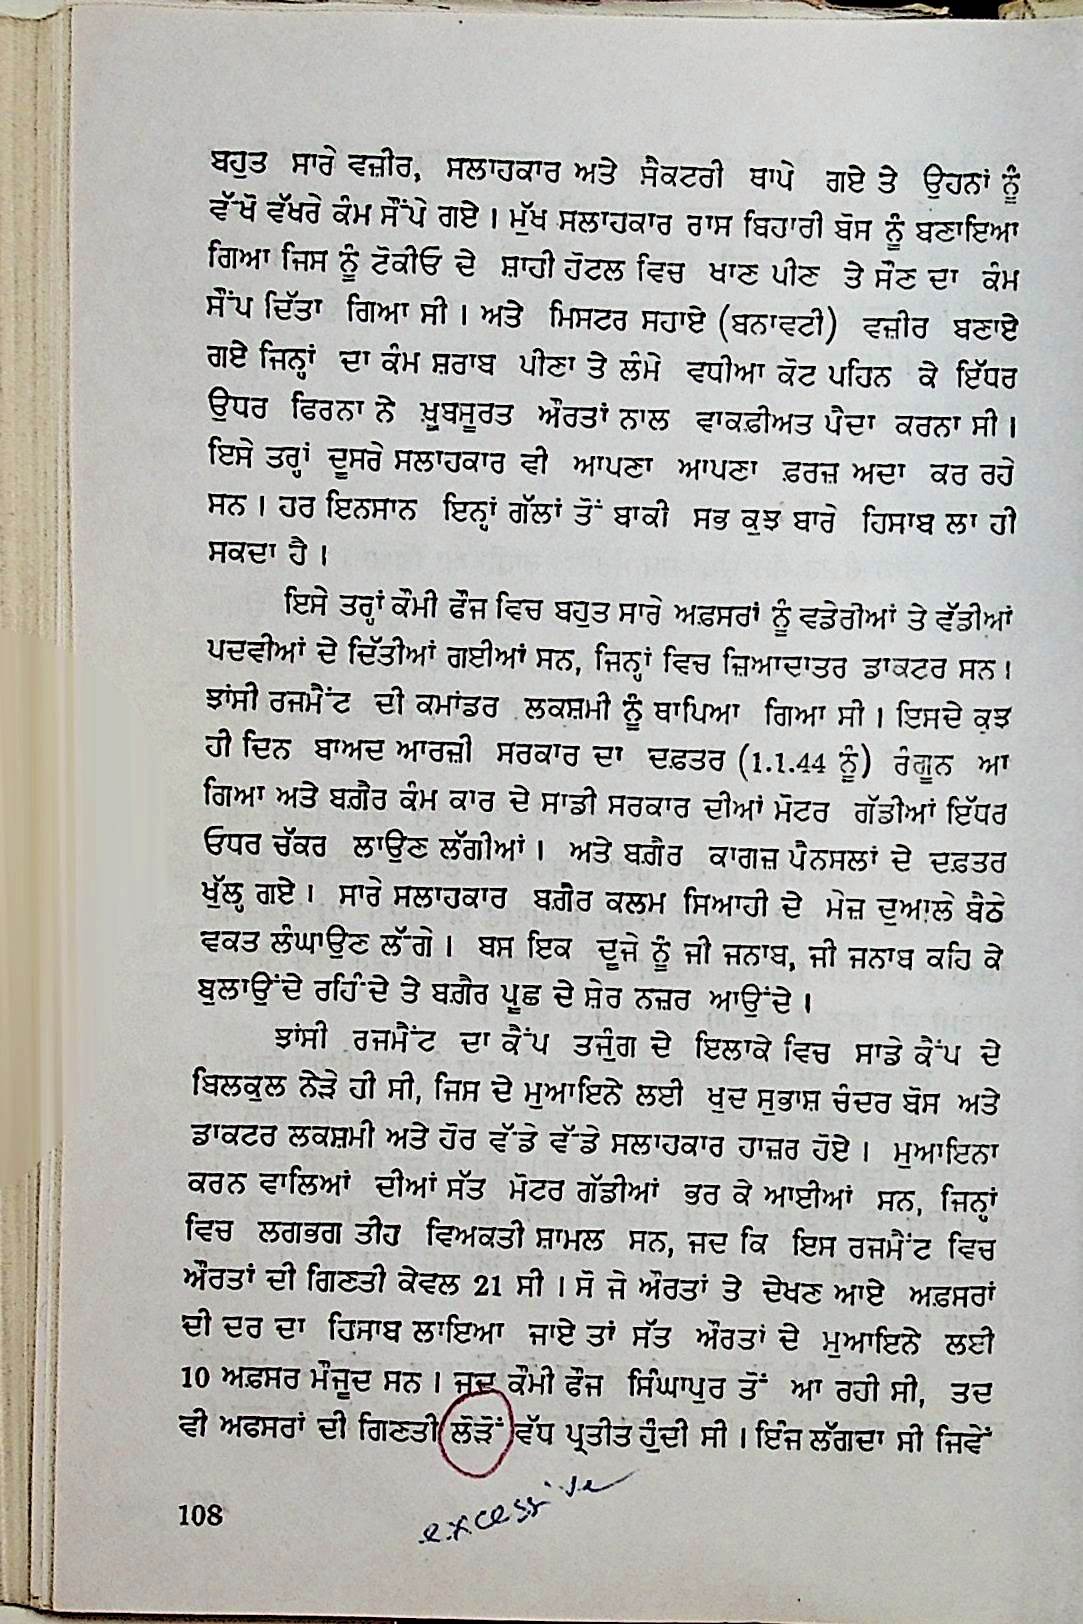 ਬਹੁਤ ਸਾਰੇ ਵਜ਼ੀਰ, ਸਲਾਹਕਾਰ ਅਤੇ ਸੈਕਟਰੀ ਥਾਪੇ ਗਏ ਤੇ ਉਹਨਾਂ ਨੂੰ
ਵੱਖੋ ਵੱਖਰੇ ਕੰਮ ਸੌਂਪੇ ਗਏ। ਮੁੱਖ ਸਲਾਹਕਾਰ ਰਾਸ ਬਿਹਾਰੀ ਬੋਸ ਨੂੰ ਬਣਾਇਆ
ਗਿਆ ਜਿਸ ਨੂੰ ਟੋਕੀਓ ਦੇ ਸ਼ਾਹੀ ਹੋਟਲ ਵਿਚ ਖਾਣ ਪੀਣ ਤੇ ਸੌਣ ਦਾ ਕੰਮ
ਸੌਂਪ ਦਿੱਤਾ ਗਿਆ ਸੀ। ਅਤੇ ਮਿਸਟਰ ਸਹਾਏ (ਬਨਾਵਟੀ) ਵਜ਼ੀਰ ਬਣਾਏ
ਗਏ ਜਿਨ੍ਹਾਂ ਦਾ ਕੰਮ ਸ਼ਰਾਬ ਪੀਣਾ ਤੇ ਲੰਮੇ ਵਧੀਆ ਕੋਟ ਪਹਿਨ ਕੇ ਇੱਧਰ
ਉਧਰ ਫਿਰਨਾ ਨੇ ਖ਼ੂਬਸੂਰਤ ਔਰਤਾਂ ਨਾਲ ਵਾਕਫ਼ੀਅਤ ਪੈਦਾ ਕਰਨਾ ਸੀ।
ਇਸੇ ਤਰ੍ਹਾਂ ਦੂਸਰੇ ਸਲਾਹਕਾਰ ਵੀ ਆਪਣਾ ਆਪਣਾ ਫ਼ਰਜ਼ ਅਦਾ ਕਰ ਰਹੇ
ਸਨ। ਹਰ ਇਨਸਾਨ ਇਨ੍ਹਾਂ ਗੱਲਾਂ ਤੋਂ ਬਾਕੀ ਸਭ ਕੁਝ ਬਾਰੇ ਹਿਸਾਬ ਲਾ ਹੀ
ਸਕਦਾ ਹੈ।
ਇਸੇ ਤਰ੍ਹਾਂ ਕੌਮੀ ਫੌਜ ਵਿਚ ਬਹੁਤ ਸਾਰੇ ਅਫ਼ਸਰਾਂ ਨੂੰ ਵਡੇਰੀਆਂ ਤੇ ਵੱਡੀਆਂ
ਪਦਵੀਆਂ ਦੇ ਦਿੱਤੀਆਂ ਗਈਆਂ ਸਨ, ਜਿਨ੍ਹਾਂ ਵਿਚ ਜ਼ਿਆਦਾਤਰ ਡਾਕਟਰ ਸਨ।
ਝਾਂਸੀ ਰਜਮੈਂਟ ਦੀ ਕਮਾਂਡਰ ਲਕਸ਼ਮੀ ਨੂੰ ਥਾਪਿਆ ਗਿਆ ਸੀ। ਇਸਦੇ ਕੁਝ
ਹੀ ਦਿਨ ਬਾਅਦ ਆਰਜ਼ੀ ਸਰਕਾਰ ਦਾ ਦਫ਼ਤਰ (1.1.44 ਨੂੰ) ਰੰਗੂਨ ਆ
ਗਿਆ ਅਤੇ ਬਗ਼ੈਰ ਕੰਮ ਕਾਰ ਦੇ ਸਾਡੀ ਸਰਕਾਰ ਦੀਆਂ ਮੋਟਰ ਗੱਡੀਆਂ ਇੱਧਰ
ਓਧਰ ਚੱਕਰ ਲਾਉਣ ਲੱਗੀਆਂ। ਅਤੇ ਬਗ਼ੈਰ ਕਾਗਜ਼ ਪੈਨਸਲਾਂ ਦੇ ਦਫ਼ਤਰ
ਖੁੱਲ੍ਹ ਗਏ। ਸਾਰੇ ਸਲਾਹਕਾਰ ਬਗ਼ੈਰ ਕਲਮ ਸਿਆਹੀ ਦੇ ਮੇਜ਼ ਦੁਆਲੇ ਬੈਠੇ
ਵਕਤ ਲੰਘਾਉਣ ਲੱਗੇ। ਬਸ ਇਕ ਦੂਜੇ ਨੂੰ ਜੀ ਜਨਾਬ, ਜੀ ਜਨਾਬ ਕਹਿ ਕੇ
ਬੁਲਾਉਂਦੇ ਰਹਿੰਦੇ ਤੇ ਬਗ਼ੈਰ ਪੂਛ ਦੇ ਸ਼ੇਰ ਨਜ਼ਰ ਆਉਂਦੇ।
ਝਾਂਸੀ ਰਜਮੈਂਟ ਦਾ ਕੈਂਪ ਤਜੁੰਗ ਦੇ ਇਲਾਕੇ ਵਿਚ ਸਾਡੇ ਕੈਂਪ ਦੇ
ਬਿਲਕੁਲ ਨੇੜੇ ਹੀ ਸੀ, ਜਿਸ ਦੇ ਮੁਆਇਨੇ ਲਈ ਖੁਦ ਸੁਭਾਸ਼ ਚੰਦਰ ਬੋਸ ਅਤੇ
ਡਾਕਟਰ ਲਕਸ਼ਮੀ ਅਤੇ ਹੋਰ ਵੱਡੇ ਵੱਡੇ ਸਲਾਹਕਾਰ ਹਾਜ਼ਰ ਹੋਏ। ਮੁਆਇਨਾ
ਕਰਨ ਵਾਲਿਆਂ ਦੀਆਂ ਸੱਤ ਮੋਟਰ ਗੱਡੀਆਂ ਭਰ ਕੇ ਆਈਆਂ ਸਨ, ਜਿਨ੍ਹਾਂ
ਵਿਚ ਲਗਭਗ ਤੀਹ ਵਿਅਕਤੀ ਸ਼ਾਮਲ ਸਨ, ਜਦ ਕਿ ਇਸ ਰਜਮੈਂਟ ਵਿਚ
ਔਰਤਾਂ ਦੀ ਗਿਣਤੀ ਕੇਵਲ 21 ਸੀ। ਸੋ ਜੇ ਔਰਤਾਂ ਤੇ ਦੇਖਣ ਆਏ ਅਫ਼ਸਰਾਂ
ਦੀ ਦਰ ਦਾ ਹਿਸਾਬ ਲਾਇਆ ਜਾਏ ਤਾਂ ਸੱਤ ਔਰਤਾਂ ਦੇ ਮੁਆਇਨੇ ਲਈ
10 ਅਫ਼ਸਰ ਮੌਜੂਦ ਸਨ। ਜਦ ਕੌਮੀ ਫੌਜ ਸਿੰਘਾਪੁਰ ਤੋਂ ਆ ਰਹੀ ਸੀ, ਤਦ
ਵੀ ਅਫਸਰਾਂ ਦੀ ਗਿਣਤੀ ਲੋੜੋਂ ਵੱਧ ਪ੍ਰਤੀਤ ਹੁੰਦੀ ਸੀ। ਇੰਜ ਲੱਗਦਾ ਸੀ ਜਿਵੇਂ
excessive
108